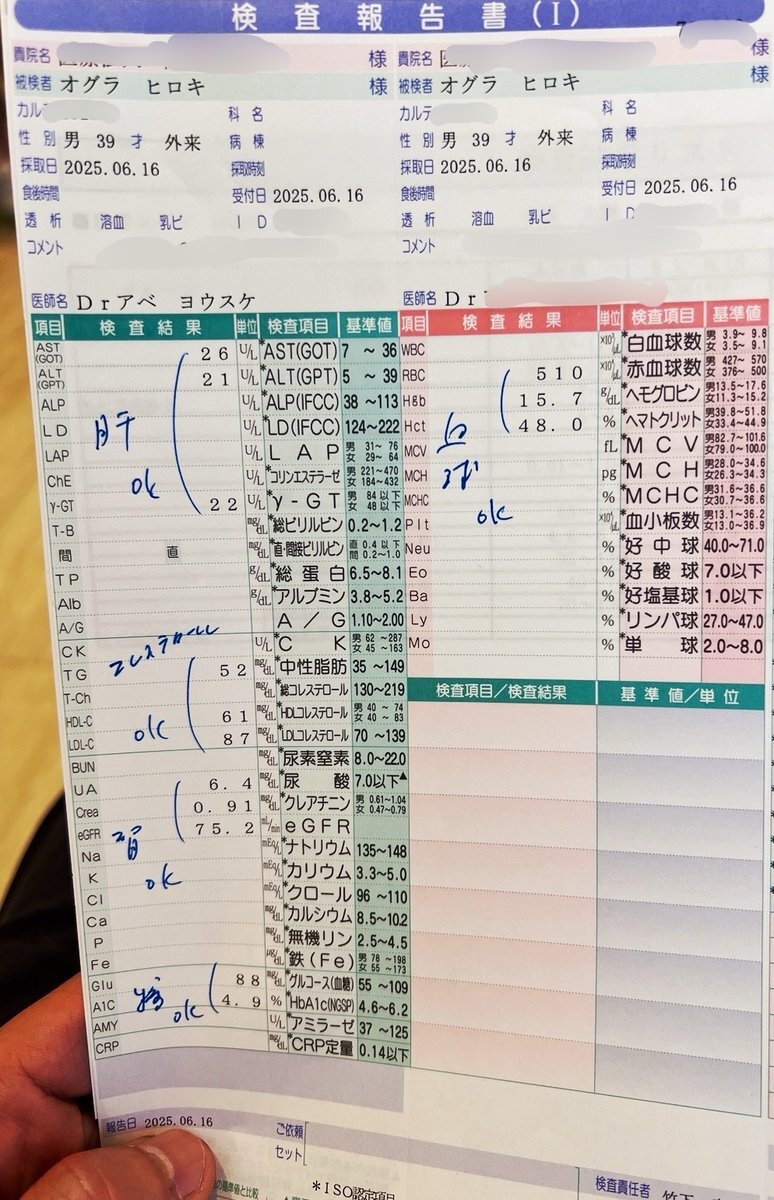 検査報告書(Ⅰ)
貴院名 様
被検者 オグラ ヒロキ 様
カルテ
科名
性別 男 39 才 外来
病棟
採取日 2025.06.16
採取時刻
食後時間
受付日 2025.06.16
透析 溶血 乳ビ ID
コメント
医師名 Drアベ ヨウスケ
項目 検査結果 単位 検査項目 基準値
AST(GOT) 26 U/L *AST(GOT) 7 ~ 36
ALT(GPT) 21 U/L *ALT(GPT) 5 ~ 39
ALP U/L *ALP(IFCC) 38 ~113
LD U/L *LD(IFCC) 124~222
LAP U/L LAP 男 31~ 76 女 29~ 64
ChE U/L *コリンエステラーゼ 男 221~470 女 184~432
γ-GT 22 U/L *γ-GT 男 84以下 女 48以下
肝
ok
T-B mg/dL *総ビリルビン 0.2~1.2
間 直 mg/dL *直・間接ビリルビン 直 0.4以下 間 0.2~1.0
TP g/dL *総蛋白 6.5~8.1
Alb g/dL *アルブミン 3.8~5.2
A/G A/G 1.10~2.00
CK U/L *CK 男 62 ~287 女 45 ~163
コレステロール
TG 52 mg/dL *中性脂肪 35 ~149
T-Ch mg/dL *総コレステロール 130~219
HDL-C 61 mg/dL *HDLコレステロール 男 40 ~ 74 女 40 ~ 83
LDL-C 87 mg/dL *LDLコレステロール 70 ~139
ok
BUN mg/dL *尿素窒素 8.0~22.0
UA 6.4 mg/dL *尿酸 7.0以下▲
Crea 0.91 mg/dL *クレアチニン 男 0.61~1.04 女 0.47~0.79
eGFR 75.2 mL/min eGFR
腎
ok
Na mEq/L *ナトリウム 135~148
K mEq/L *カリウム 3.3~5.0
Cl mEq/L *クロール 96 ~110
Ca mg/dL *カルシウム 8.5~10.2
P mg/dL *無機リン 2.5~4.5
Fe μg/dL *鉄(Fe) 男 78 ~198 女 55 ~173
Glu 88 mg/dL *グルコース(血糖) 55 ~109
A1C 4.9 % *HbA1c(NGSP) 4.6~6.2
糖
ok
AMY U/L *アミラーゼ 37 ~125
CRP mg/dL *CRP定量 0.14以下
報告日 2025.06.16
ご依頼
セット
の基準値と比較
*ISO認定項目
貴院名 様
被検者 オグラ ヒロキ 様
カルテ
科名
性別 男 39 才 外来
病棟
採取日 2025.06.16
採取時刻
食後時間
受付日 2025.06.16
透析 溶血 乳ビ ID
コメント
医師名 Dr
項目 検査結果 単位 検査項目 基準値
WBC *白血球数 男 3.9~ 9.8 女 3.5~ 9.1
RBC 510 *赤血球数 男 427~ 570 女 376~ 500
Hb 15.7 g/dL *ヘモグロビン 男13.5~17.6 女11.3~15.2
Hct 48.0 % *ヘマトクリット 男39.8~51.8 女33.4~44.9
MCV fL *MCV 男82.7~101.6 女79.0~100.0
MCH pg *MCH 男28.0~34.6 女26.3~34.3
MCHC % *MCHC 男31.6~36.6 女30.7~36.6
血球
ok
Plt *血小板数 男13.1~36.2 女13.0~36.9
Neu % *好中球 40.0~71.0
Eo % *好酸球 7.0以下
Ba % *好塩基球 1.0以下
Ly % *リンパ球 27.0~47.0
Mo % *単球 2.0~8.0
検査項目/検査結果 基準値/単位
検査責任者